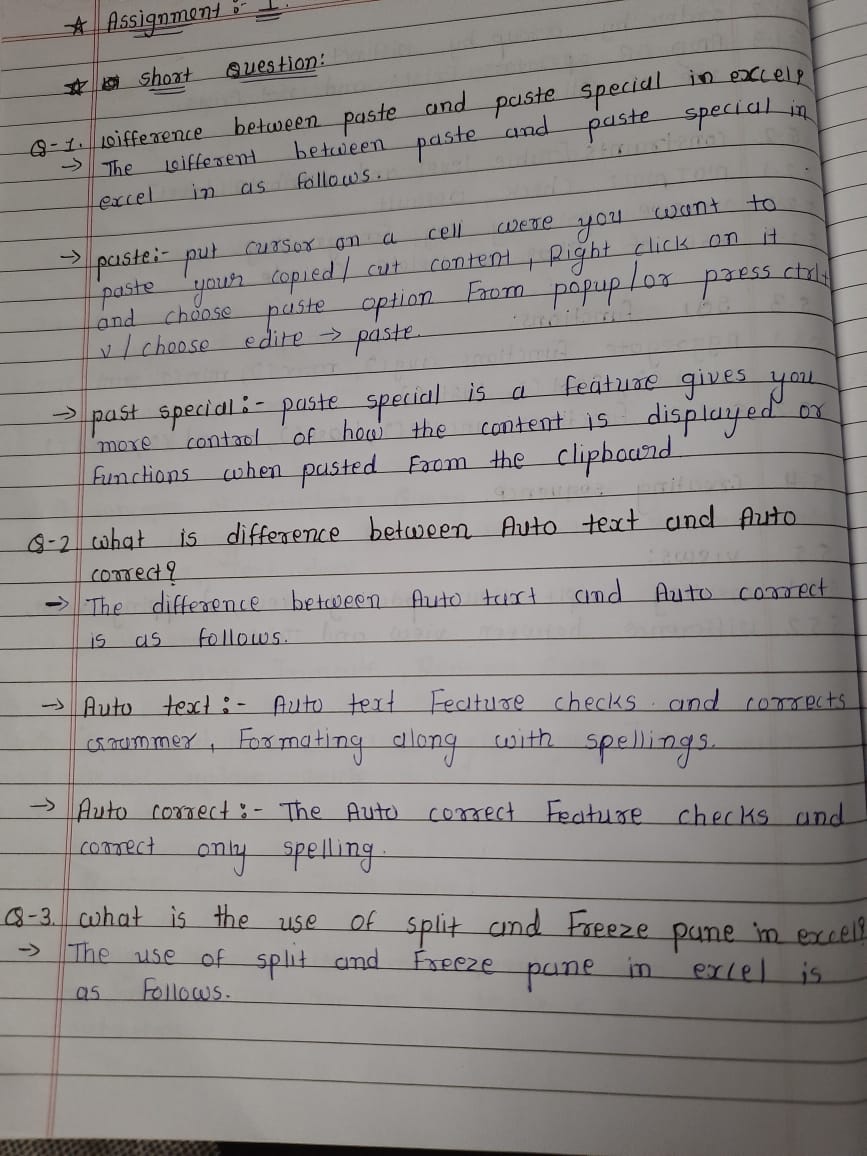 ☆ Assignment :- 1.
☆ short Question:
Q-1. Difference between paste and paste special in excel?
→ The different between paste and paste special in
excel in as follows.
→ paste:- put cursor on a cell were you want to
paste your copied/cut content, Right click on it
and choose paste option From popup/or press ctrl+
v/choose edite → paste.
→ past special:- paste special is a feature gives you
more control of how the content is displayed or
functions when pasted From the clipboard
Q-2 what is difference between Auto text and Auto
correct?
→ The difference between Auto taxt and Auto correct
is as follows.
→ Auto text:- Auto text Feature checks and corrects
Grammer, Formating along with spellings.
→ Auto correct:- The Auto correct Feature checks and
correct only spelling.
Q-3. what is the use of split and Freeze pane in excel?
→ The use of split and Freeze pane in excel is
as Follows.